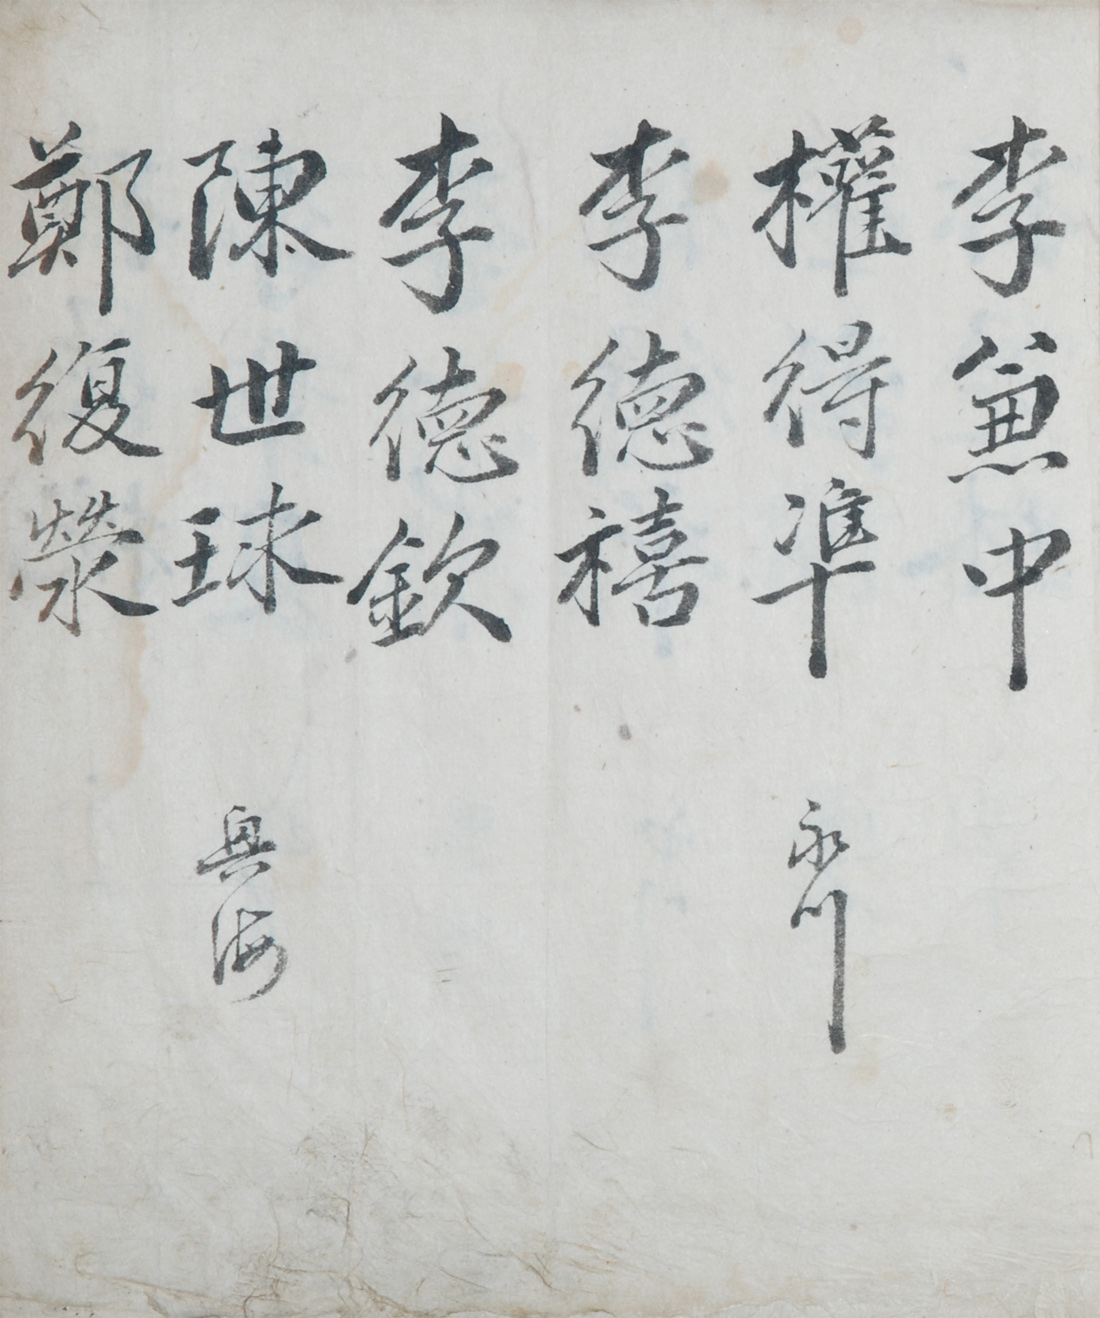 李兼中
權得準 永川
李德禧
李德欽
陳世球 興海
鄭復滎